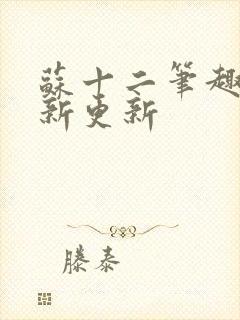 蘇十二筆趣
新更新
滕泰